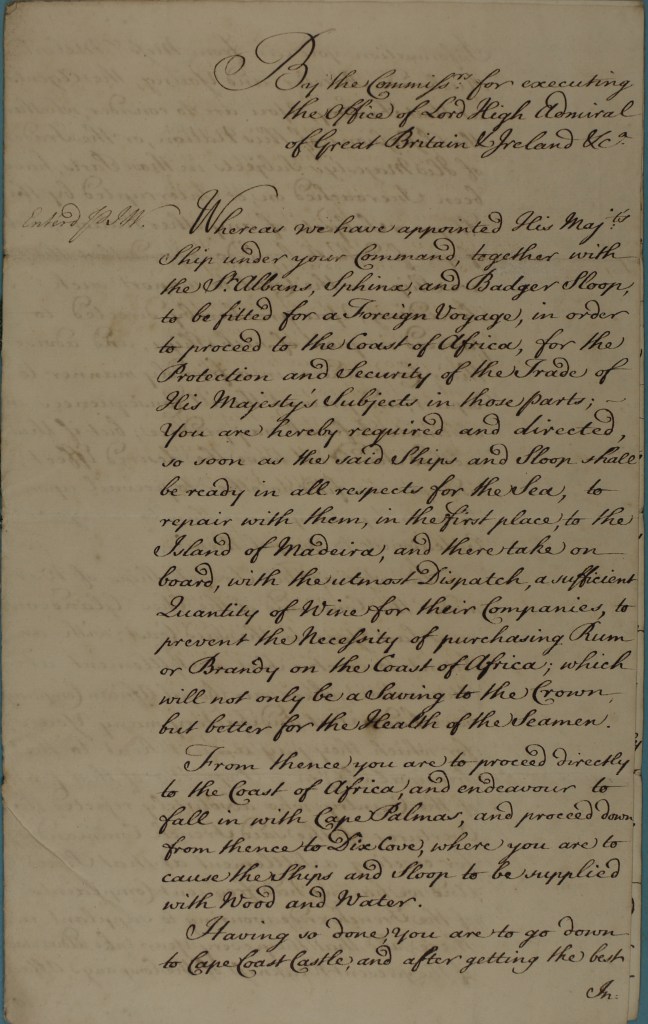 By the Commissrs. for executing
the Office of Lord High Admiral
of Great Britain & Ireland &ca.
Enterd
Whereas we have appointed His Majts.
Ship under your Command, together with
the St. Albans, Sphinx, and Badger Sloop,
to be fitted for a Foreign Voyage, in order
to proceed to the Coast of Africa, for the
Protection and Security of the Trade of
His Majesty's Subjects in those parts; –
You are hereby required and directed,
so soon as the said Ships and Sloop shall
be ready in all respects for the Sea, to
repair with them, in the first place, to the
Island of Madeira, and there take on
board, with the utmost Dispatch, a sufficient
Quantity of Wine for their Companies, to
prevent the Necessity of purchasing Rum
or Brandy on the Coast of Africa; which
will not only be a Saving to the Crown,
but better for the Health of the Seamen.
From thence you are to proceed directly
to the Coast of Africa, and endeavour to
fall in with Cape Palmas, and proceed down
from thence to Dix Cove, where you are to
cause the Ships and Sloop to be supplied
with Wood and Water.
Having so done, you are to go down
to Cape Coast Castle, and after getting the best
In: